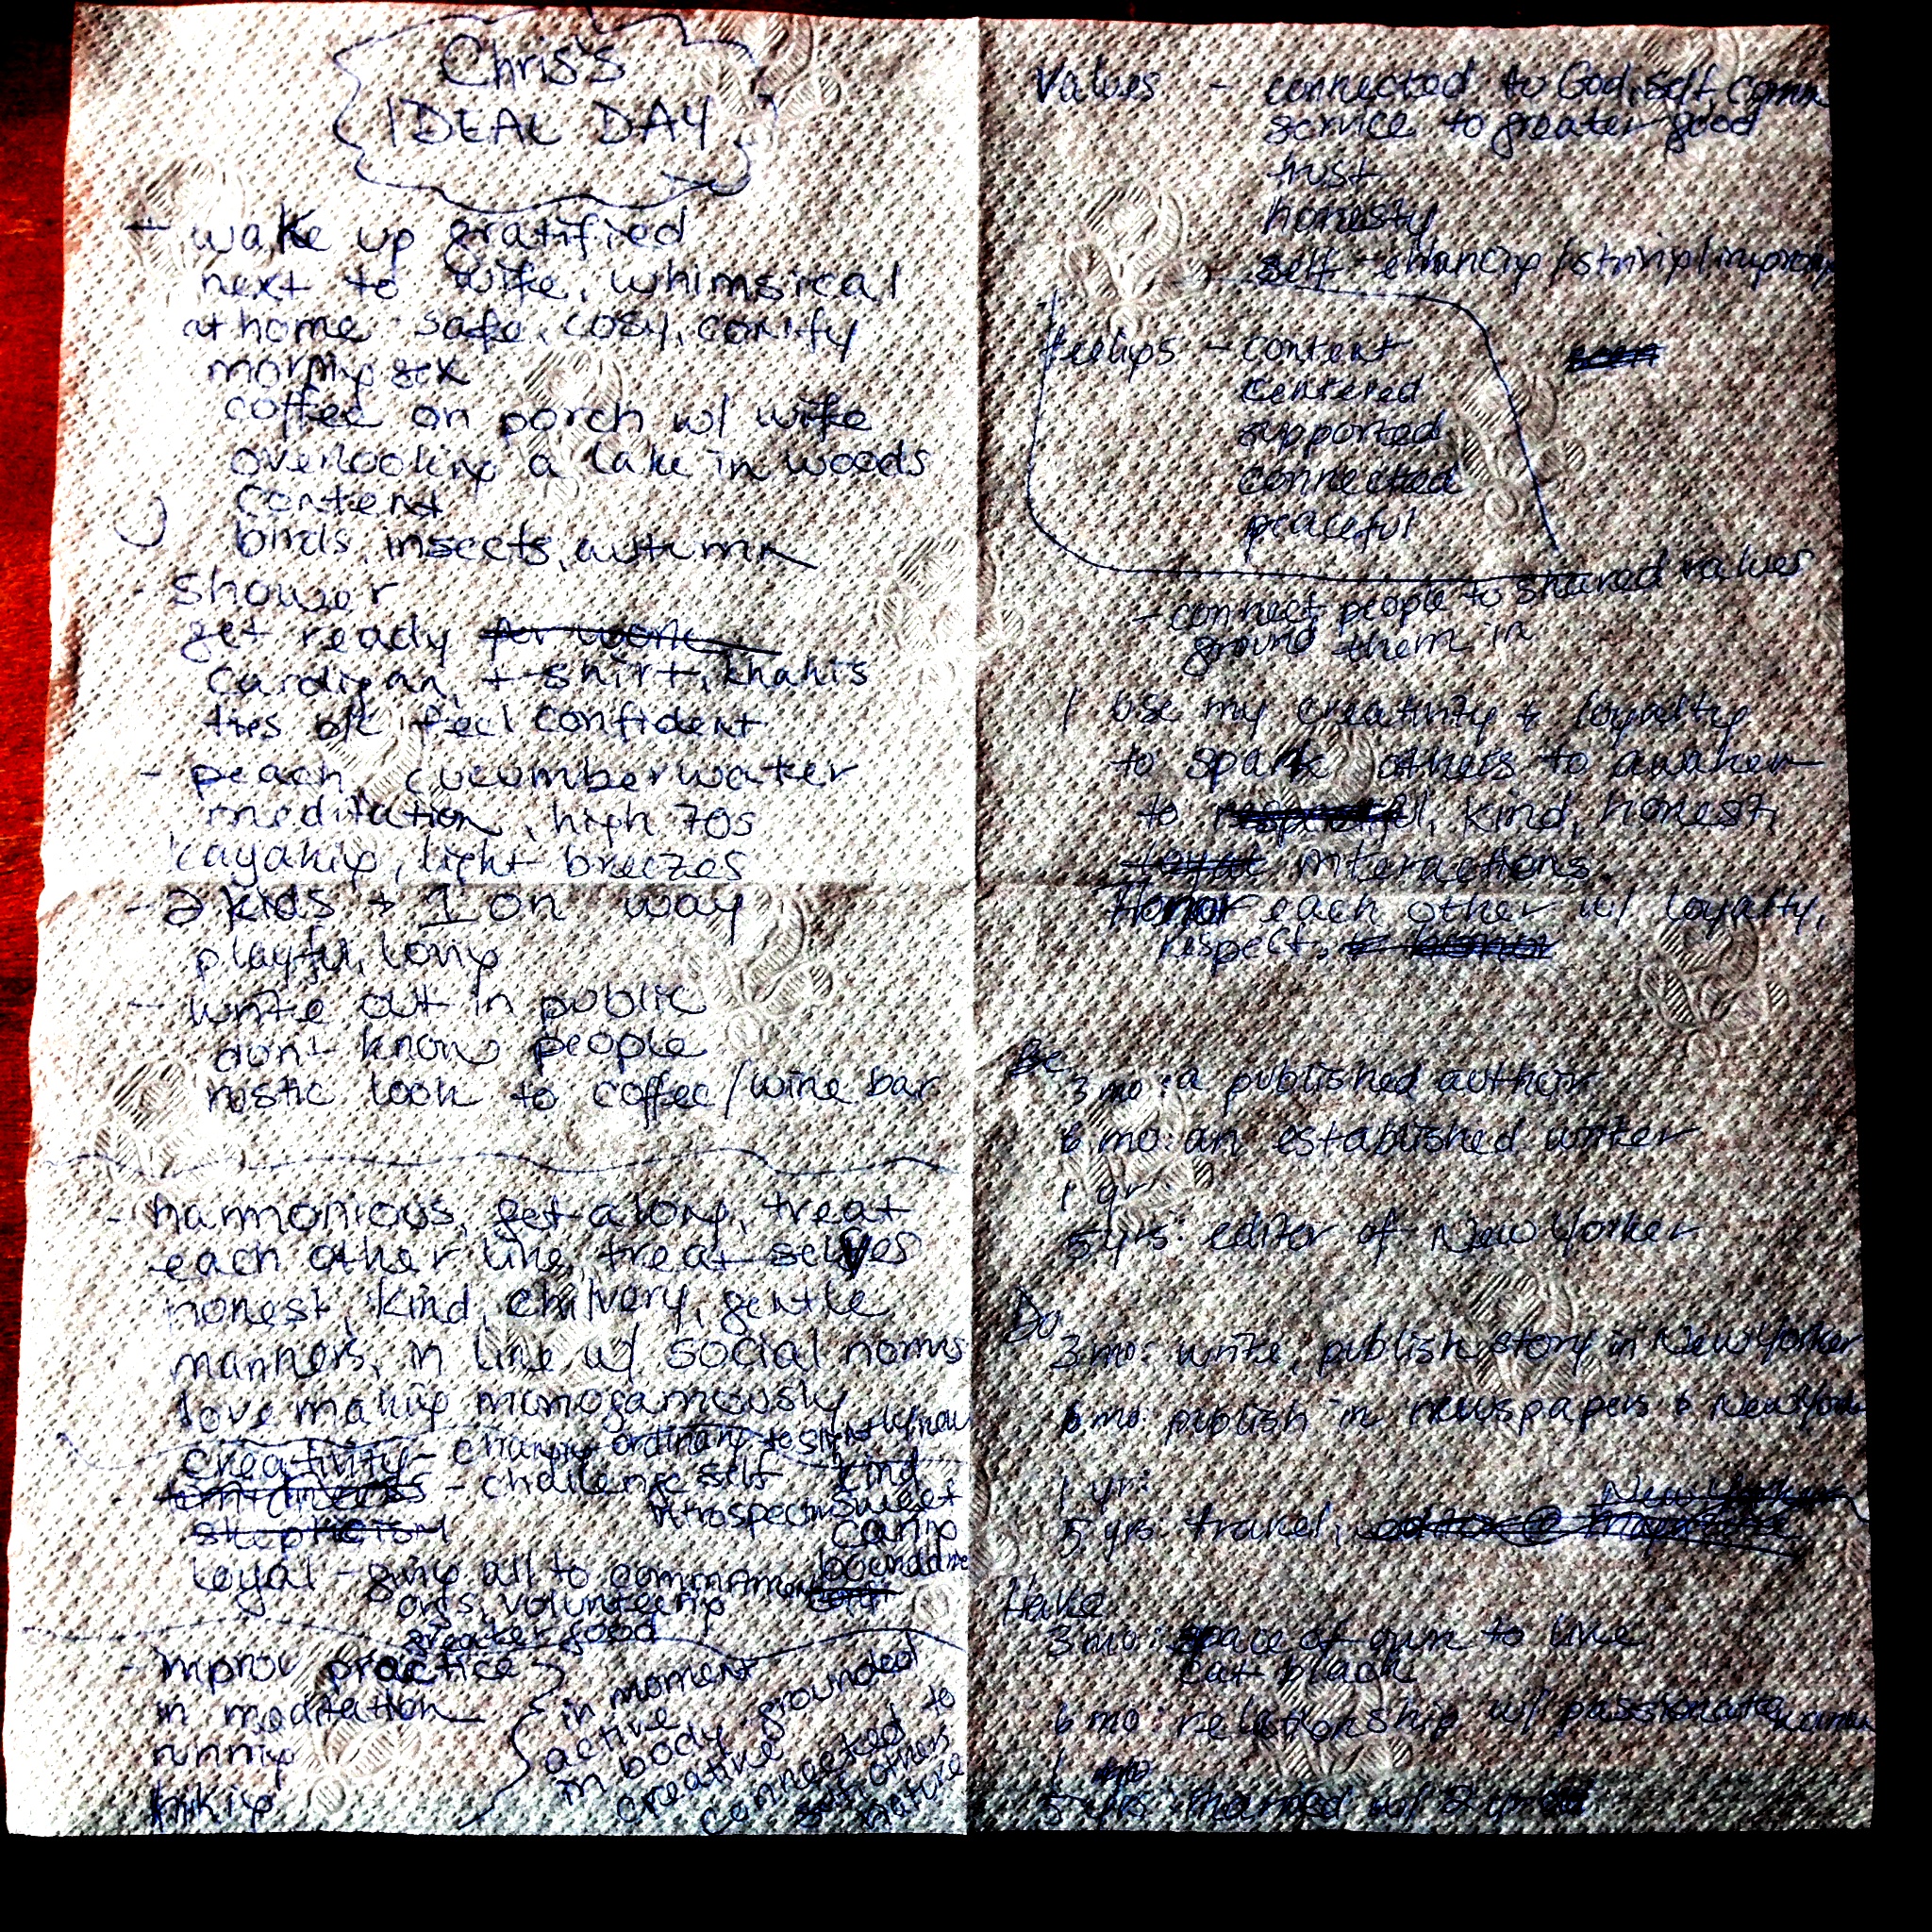 Chris's
IDEAL DAY
- wake up gratified
next to wife, whimsical
at home safe, cosy, comfy
morning sex
coffee on porch w/ wife
overlooking a lake in woods
content
birds, insects, autumn
- shower
get ready for work
cardigan, t-shirt, khakis
ties ok feel confident
- peach, cucumber water
meditation, high 70s
kayaking, light breezes
- 2 kids + 1 on way
playful, loving
- write out in public
don't know people
rustic look to coffee/wine bar
- harmonious, get along, treat
each other like treat selves
honest, kind, chilvery, gentle
manners, in line w/ social norms
love making monogamously
creativity - changing ordinary to
- challenge self kind
introspection sweet
skepticism caring
loyal - giving all to commitment
orgs, volunteering
greater good
- improv practice
in meditation
running
hiking
in moment
active
in body grounded
creative
connected to
self others
nature
Values - connected to God, self, comm
service to greater good
trust
honesty
self-enhancing/striving/improving
feelings - content
centered
supported
connected
peaceful
- connect people to shared values
ground them in
I use my creativity & loyalty
to spark others to awaken
to respectful, kind, honest
loyal interactions.
Honor each other w/ loyalty,
respect,
Be
3 mo: a published author
6 mo: an established writer
1 yr
5 yrs: editor of New Yorker
Do
3 mo: write, publish story in New Yorker
6 mo: publish in newspapers & New Yorker
1 yr:
New Yorker
5 yrs travel, editor @ magazine
Have
3 mo: space of own to live
cat black
6 mo: relationship w/ passionate
1
5 yrs: married w/